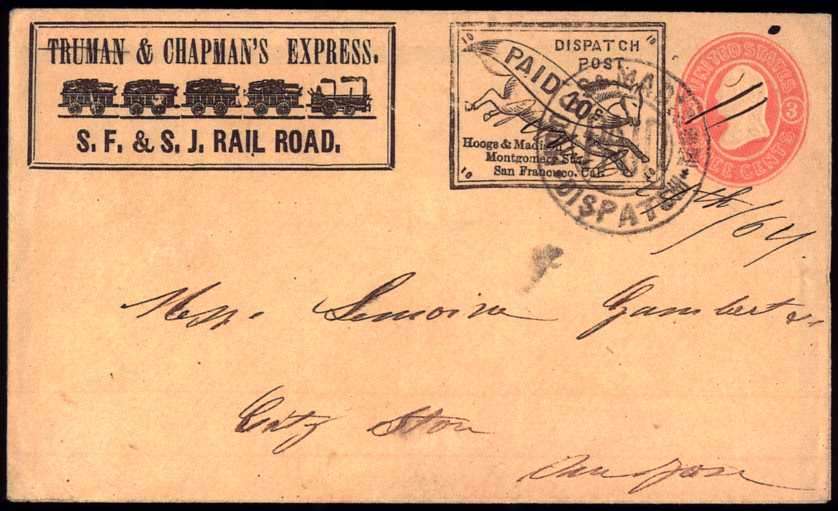 TRUMAN & CHAPMAN'S EXPRESS.
S. F. & S. J. RAIL ROAD.
10 10
DISPATCH
POST.
PAID 10c
Hoogs & Madison
Montgomery Street
San Francisco, Cal.
10 10
DISPATCH
UNITED STATES
3 3
THREE CENTS
11
/64
Mess. Lemoine Gambert &
City Store
San Jose